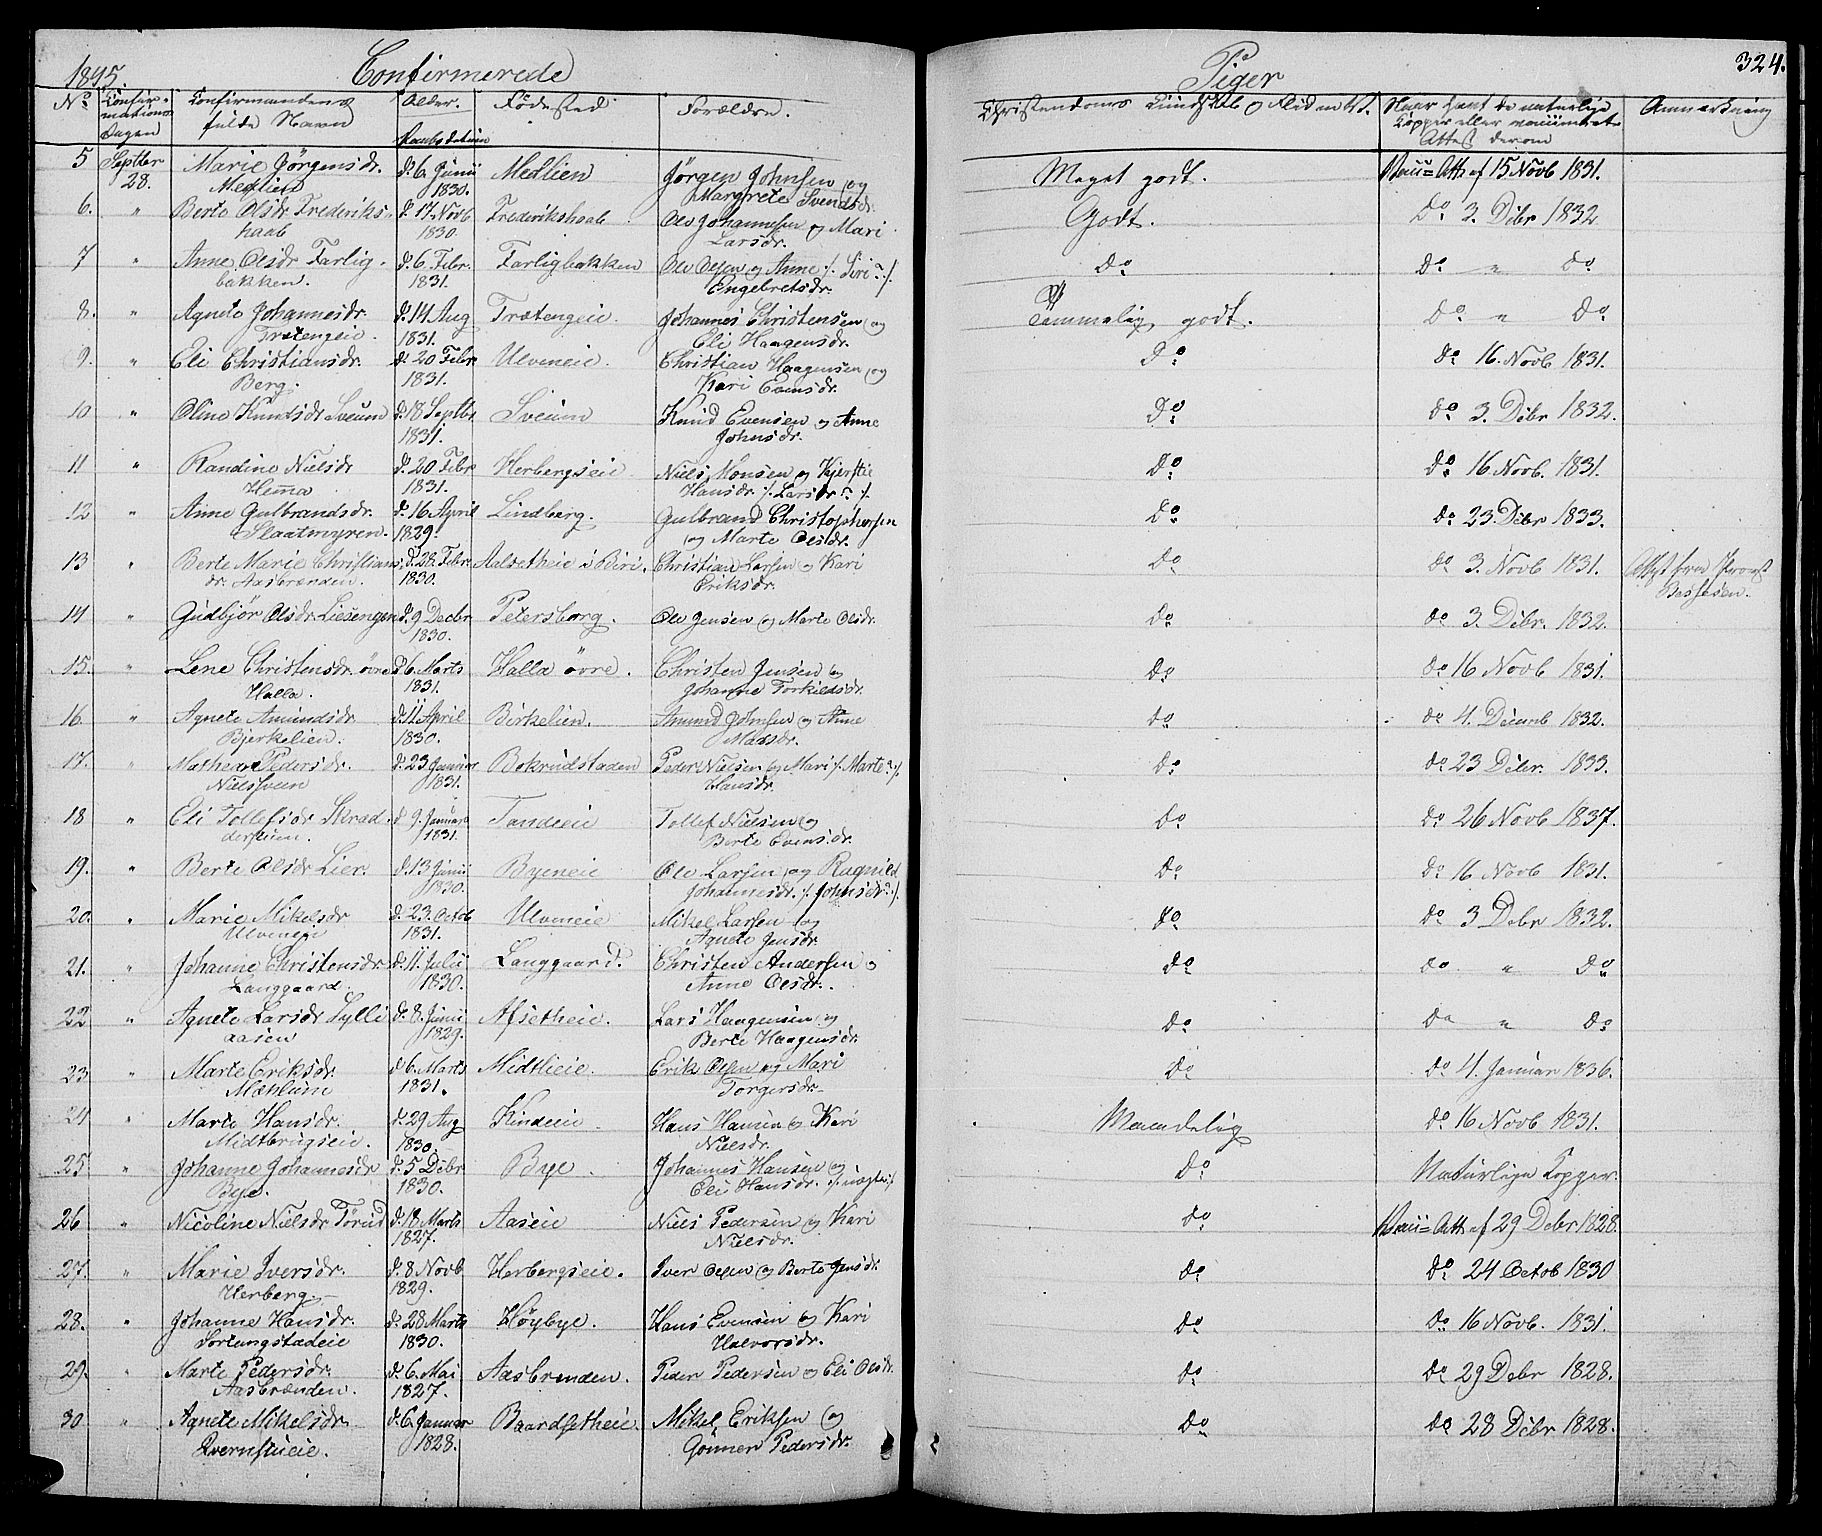 1845. Confirmerede Piger 324.
No. Confirmations Dagen Confirmandens fulde Navn Alder. Daabsdatum Fødested Forældre. Christendoms Kundskab og Flid m.V. Naar havt de naturlige Kopper eller vaccineret Attest derom Anmærkning
5 Septbr 28. Marie Jørgensdr. d. 6. Junii Medlien Jørgen Johnsen og Meget godt. Vacc=Att. af 15 Novb 1831.
Medlien 1830. Margrete Svendsdr.
6. " Berte Olsdr Frederiks- d. 17. Novb Frederikshaab Ole Johannesen og Mari Godt. Do 3. Dcbr 1832
haab 1830. Larsdr.
7 " Anne Olsdr Farlig- d. 6. Febr. Farligbakken Ole Olsen og Anne ./. Siri ? ./. Do Do " Do
bakken. 1831. Engebretsdr.
8. " Agnete Johannesdr. d. 14 Aug Trætengeie. Johannes Christensen og Temmelig godt. Do " Do
Trætengeie. 1831. Eli Haagensdr.
9. " Eli Christiansdr. d. 20 Febr Ulveneie. Christian Haagensen og Do Do 16. Novb 1831.
Berg. 1831. Kari Evensdr.
10 " Oline Knudsdr Sveum d. 18 Septbr Sveum Knud Evensen og Anne Do Do 3. Dcbr 1832.
1831. Johnsdr.
11 " Randine Nielsdr d. 20 Febr Herbergseie Niels Monsen og Kjerstie Do Do 16 Novb. 1831.
Hemma 1831. Hansdr. ./. Larsdr ? ./.
12 " Anne Gulbrandsdr. d. 16 April Lindberg. Gulbrand Christophersen Do Do 23. Dcbr 1833.
Slaatmyren. 1829. og Marte Olsdr.
13 " Berte Marie Christians- d. 28. Febr. Aalsetheie i Biri. Christian Larsen og Kari Do Do 3. Novb 1831. Attest fra Provst
dr. Aasbrænden. 1830. Eriksdr.
14 " Gudbjør Olsdr. Liesengen d. 9 Decbr Petersborg. Ole Jensen og Marte Olsdr. Do Do 3. Dcbr. 1832.
1830.
15. " Lene Christensdr. øvre d. 6. Marts Halla øvre. Christen Jensen og Do Do 16 Novb 1831
Halla. 1831. Johanne Torkildsdr.
16. " Agnete Amundsdr d. 11 April Birkelien. Amund Johnsen og Anne Do Do 4. Decemb 1832.
Bjerkelien. 1830. Madsdr.
17. " Mathea Pedersdr. d. 23 Januar Bokrudstaden Peder Nielsen og Mari ./. Marte ? ./. Do Do 23 Dcbr. 1833.
Nielsveen 1831. Hansdr
18 " Eli Tollefsdr Skrad- d 9. Januar Tandeeie Tollef Nielsen og Do Do 26 Novb 1837.
1831. Berte Evensdr.
19. " Berte Olsdr Lier. d. 13 Junii Byeneie Ole Larsen og Ragnild Do Do 16 Novb. 1831.
1830. Johannesdr. ./. Johnsdr. ? ./.
20. " Marie Mikelsdr d. 23. Octob Ulveneie Mikel Larsen og Do Do 3 Debr 1832.
Ulveneie 1831. Agnete Jensdr.
21. " Johanne Christensdr. d. 11. Julii Langgaard. Christen Andersen og Do Do " Do
Langgaard. 1830. Anne Olsdr.
22 " Agnete Larsdr Sylli d. 8. Junii Afsetheie. Lars Haagensen og Do Do " Do
aasen 1829. Berte Haagensdr.
23 " Marte Eriksdr. d 6. Marts Midtlieie. Erik Olsen og Mari Do Do 4. Januar 1836.
Mæhlum 1831. Torgersdr.
24 " Marte Hansdr. d. 29 Aug Kindeie. Hans Hansen og Kari Maadelig Do 16 Novb 1831.
Midtbrugseie. 1830. Nielsdr.
25 " Johanne Johannesdr d. 5 Dcbr Bye. Johannes Hansen og Do Naturlige Kopper.
Bye. 1830. Eli Hansdr.
26 " Nicoline Nielsdr Torud d. 18 Marts Aaseie Niels Pedersen og Kari Do Vacc=Att. af 29 Debr 1828.
1827. Nielsdr.
27. " Marie Iversdr. d. 8 Novb Herbergseie. Iver Olsen og Berte Jensdr. Do Do 24 Octob 1830
Herberg 1829.
28. " Johanne Hansdr. d. 28 Marts Høybye. Hans Evensen og Kari Do Do 16 Novb. 1831.
Sortungstadeie 1830. Halvorsdr.
29. " Marte Pedersdr d. 6. Mai Aasbrenden. Peder Pedersen og Eli Olsdr. Do Do 29 Debr 1828.
Aasbrænden. 1827.
30 " Agnete Mikelsdr d. 6. Januar Baardsetheie Mikel Eriksen og Do Do 28 Dcbr 1828.
Qvernstueie. 1828. Gonner Pedersdr.